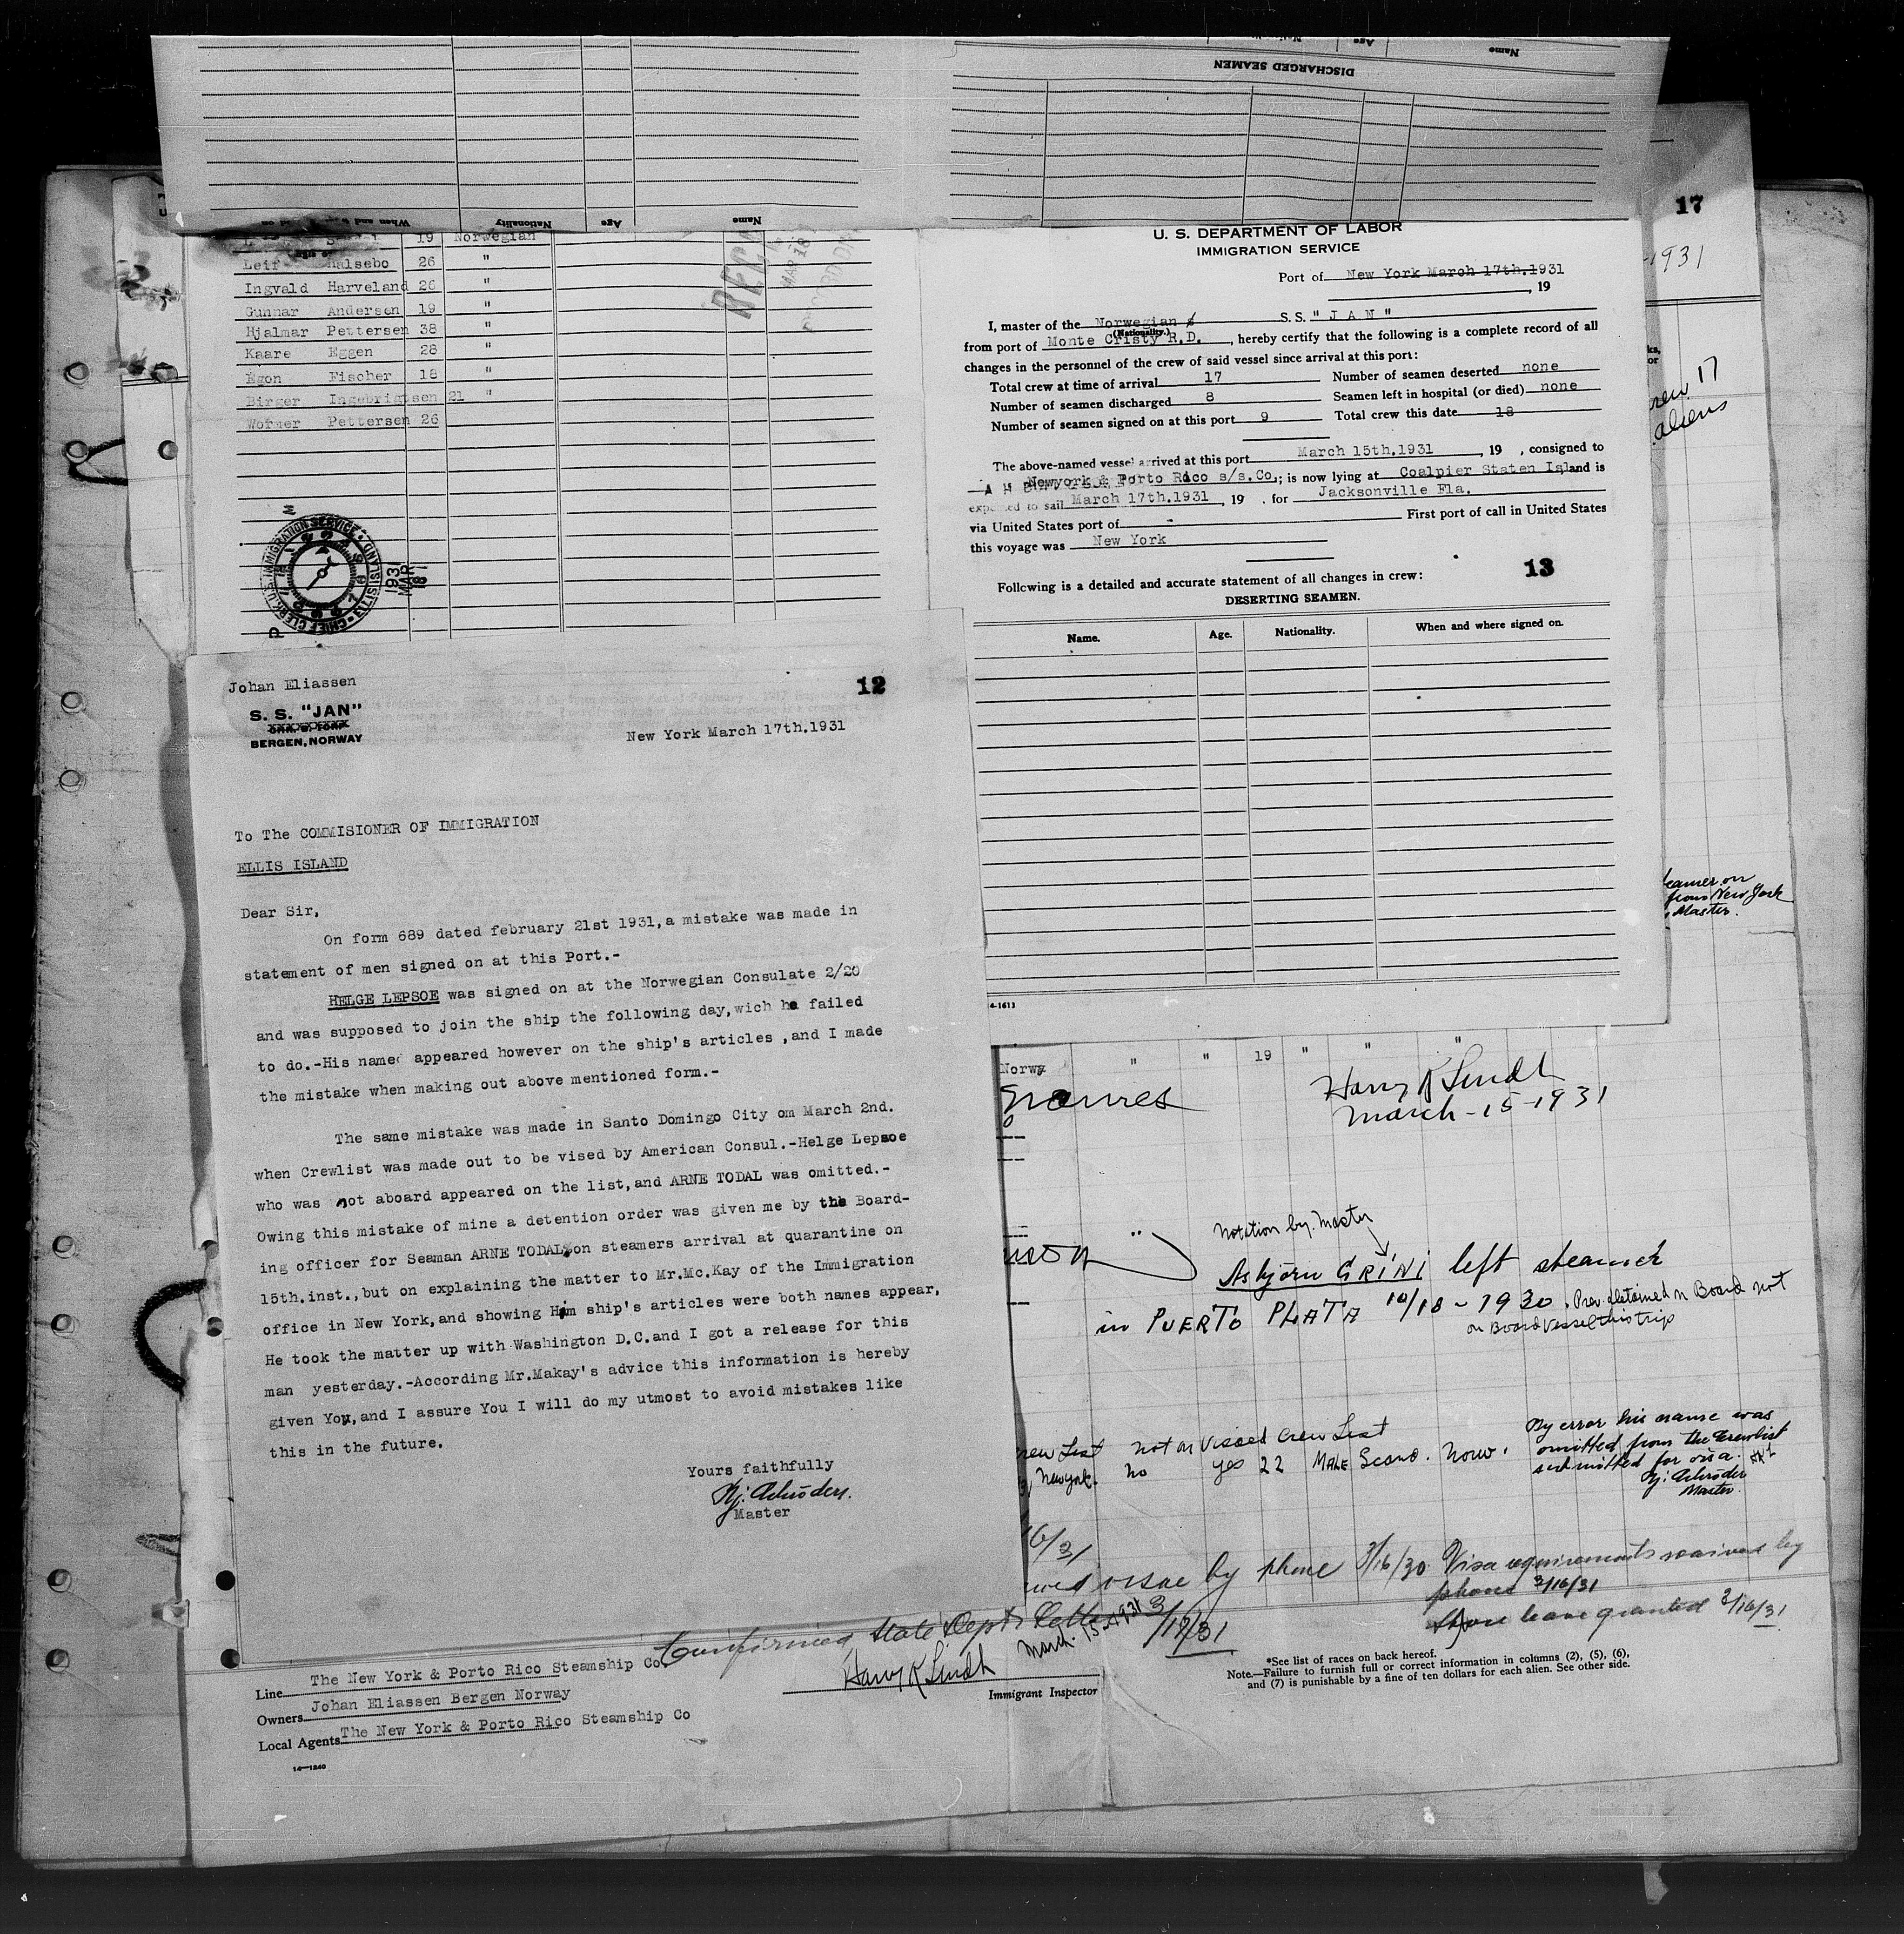 Name
Age
DISCHARGED SEAMEN
Name
Age
Nationality
When and
19 Norwegian
Leif Halsebo 26 "
Ingvald Harveland 26 "
Gunnar Andersen 19 "
Hjalmar Pettersen 38 "
Kaare Eggen 28 "
Egon Fischer 18 "
Birger Ingebrigtsen 21 "
Wormer Pettersen 26
REC'
MAR 18
CHIEF CLERK. U.S. IMMIGRATION SERVICE. ELLIS ISLAND
1931
MAR
18
U. S. DEPARTMENT OF LABOR
IMMIGRATION SERVICE
Port of New York March 17th.1931
, 19
I, master of the Norwegian S.S. " J A N "
(Nationality.)
from port of Monte Cristy R.D. , hereby certify that the following is a complete record of all
changes in the personnel of the crew of said vessel since arrival at this port:
Total crew at time of arrival 17 Number of seamen deserted none
Number of seamen discharged 8 Seamen left in hospital (or died) none
Number of seamen signed on at this port 9 Total crew this date 18
The above-named vessel arrived at this port March 15th.1931 , 19 , consigned to
Newyork & Porto Rico s/s.Co.; is now lying at Coalpier Staten Island is
expected to sail March 17th.1931 , 19 , for Jacksonville Fla.
via United States port of - First port of call in United States
this voyage was New York
13
Following is a detailed and accurate statement of all changes in crew:
DESERTING SEAMEN.
Name. Age. Nationality. When and where signed on.
4-1613
17
1931
17
aliens
from New York
Master.
Johan Eliassen
12
S. S. "JAN"
BERGEN, NORWAY
New York March 17th.1931
To The COMMISIONER OF IMMIGRATION
ELLIS ISLAND
Dear Sir,
On form 689 dated february 21st 1931,a mistake was made in
statement of men signed on at this Port.-
HELGE LEPSOE was signed on at the Norwegian Consulate 2/20
and was supposed to join the ship the following day,wich he failed
to do.-His name appeared however on the ship's articles ,and I made
the mistake when making out above mentioned form.-
The same mistake was made in Santo Domingo City om March 2nd.
when Crewlist was made out to be vised by American Consul.-Helge Lepsoe
who was not aboard appeared on the list,and ARNE TODAL was omitted.-
Owing this mistake of mine a detention order was given me by the Board-
ing officer for Seaman ARNE TODAL,on steamers arrival at quarantine on
15th.inst.,but on explaining the matter to Mr.Mc.Kay of the Immigration
office in New York,and showing Him ship's articles were both names appear,
He took the matter up with Washington D.C.and I got a release for this
man yesterday.-According Mr.Makay's advice this information is hereby
given You,and I assure You I will do my utmost to avoid mistakes like
this in the future.
Yours faithfully
Hj: Schröder.
Master
" " 19 " " "
Harry K Lindh
March-15-1931
Notation by Master
Asbjörn GRINI left steamer
in PUERTO PLATA 10/18-1930. Prev. detained on Board not
on Board vessel this trip
Not on Visaed Crew List
New York. No yes 22 MALE Scand. Norw.
By error his name was
omitted from the Crewlist
submitted for visa.
Hj: Schröder
Master.
16/31
by phone 3/16/30 Visa requirements waived by
phone 3/16/31
Shore leave granted 3/16/31
Confirmed State Dept's Letter 3/17/31
Harry K Lindh March. 15-1931
Immigrant Inspector
Line The New York & Porto Rico Steamship Co.
Owners Johan Eliassen Bergen Norway
Local Agents The New York & Porto Rico Steamship Co
14—1240
*See list of races on back hereof.
Note.—Failure to furnish full or correct information in columns (2), (5), (6),
and (7) is punishable by a fine of ten dollars for each alien. See other side.